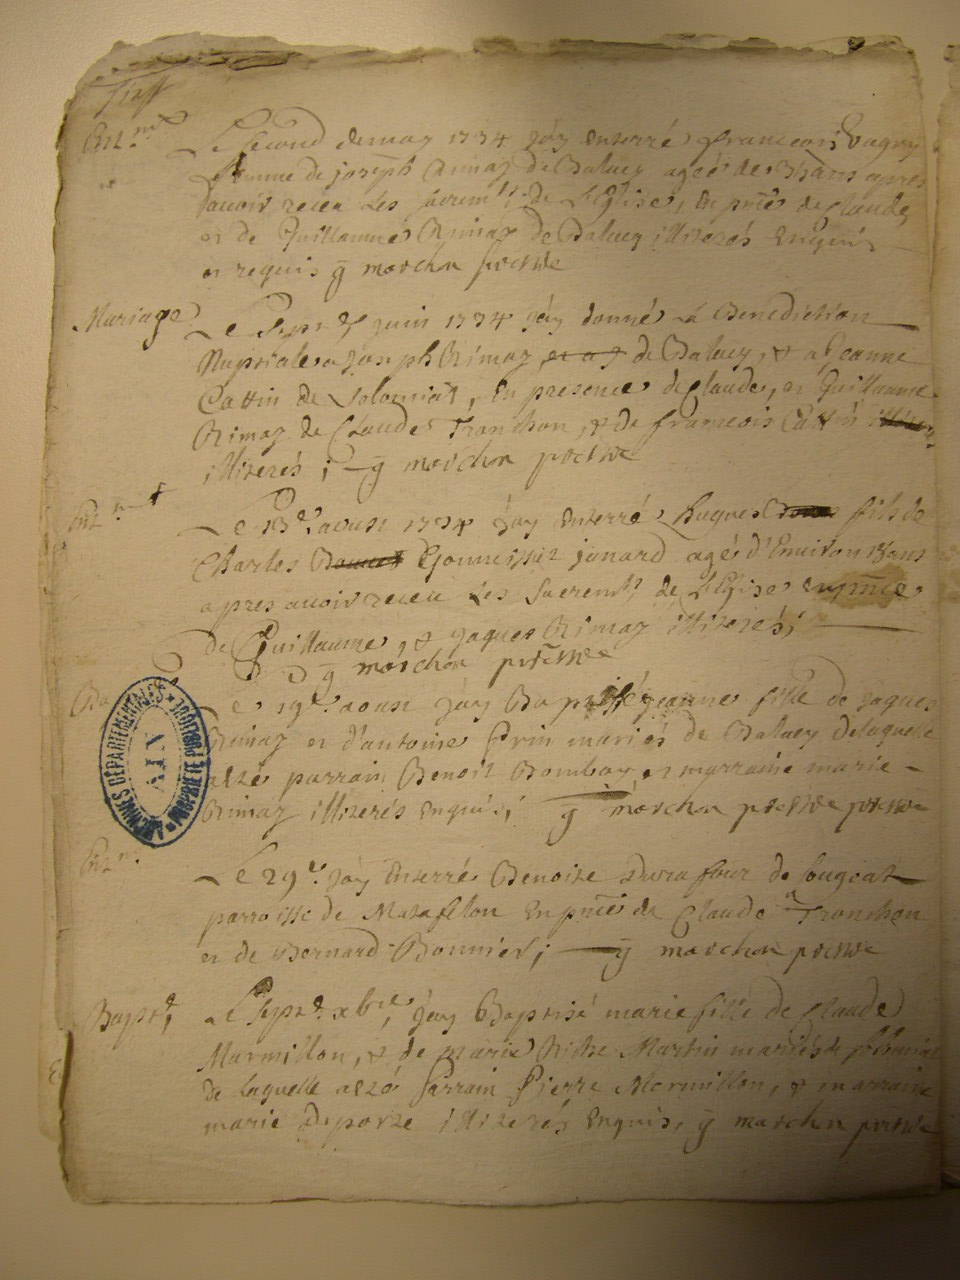 Ent.m
Le second de may 1734 j'ay enterré francoise
femme de joseph Rimaz de Balvey agéé de ans apres
avoir receu Les sacrem.ts de L'Eglise, En p.nce de Claude,
et de Guillaume Rimaz de Balvey illiterés Enquis
et requis g marchon pretre
Mariage
Le Sept juin 1734 j'ay donné La Benediction
Nuptiale a joseph Rimaz de Balvey, & a jeanne
Cattin de Solomiat, En presence de Claude, et Guillaume
Rimaz de Claude Tronchon, & de francois Cattin
illiterés ; g marchon pretre
Ent.m
Le 13.e aoust 1734 j'ay Enterré hugues fils de
Charles janard agé d'Environ ans
apres avoir receu Les Sacrem.ts de L'Eglise en p.nce
de Guillaume, & jaques Rimaz illiterés;
g marchon pretre
Ba
Le 19.e aoust j'ay Baptisé jeanne fille de jaques
Rimaz et d'antoine Prin mariés de Balvey De laquelle
a été parrain Benoit Bomboy, et marraine marie
Rimaz illiterés Enquis; g marchon pretre pretre
Ent.m
Le 29.e j'ay Enterré Benoite Durafour de bugeat
parroisse de Matafelon En p.nce de Claude Tronchon
et de Bernard Bonnier; g marchon pretre
Bapt.e
Le Sept.e xbre, j'ay Baptisé marie fille de Claude
Marmillon, & de marie Martin mariés
de Laquelle a été parrain Pierre Mermillon, & marraine
marie Deporte illiterés Enquis, g marchon pretre
ARCHIVES DÉPARTEMENTALES
AIN
PROPRIÉTÉ PUBLIQUE